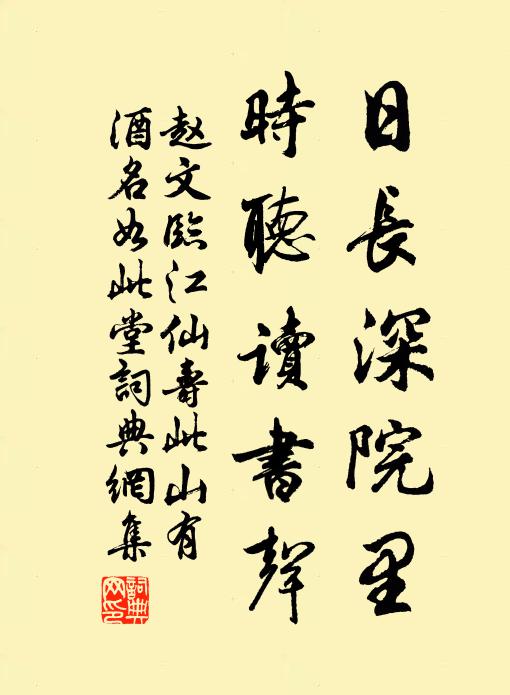 日長深院里
時聽讀書聲
赵文臨江仙壽此山有
酒名如此堂詞典網集
詞典網印